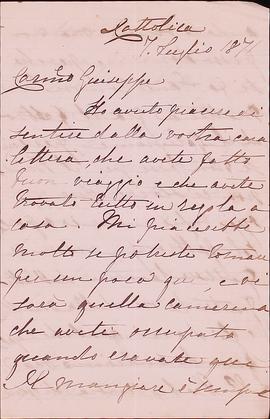 Cattolica
7. Luglio 187
Carmo Giuseppe
Ho avuto piacere di
sentire dalla vostra cara
lettera che avete fatto
buon viaggio e che avete
trovato tutto in regola a
casa. Mi piacerebbe
molto se poteste tornare
per un poca qua, e vi
sara quella camerina
che avete occupata
quando eravate qui
Il mangiare è